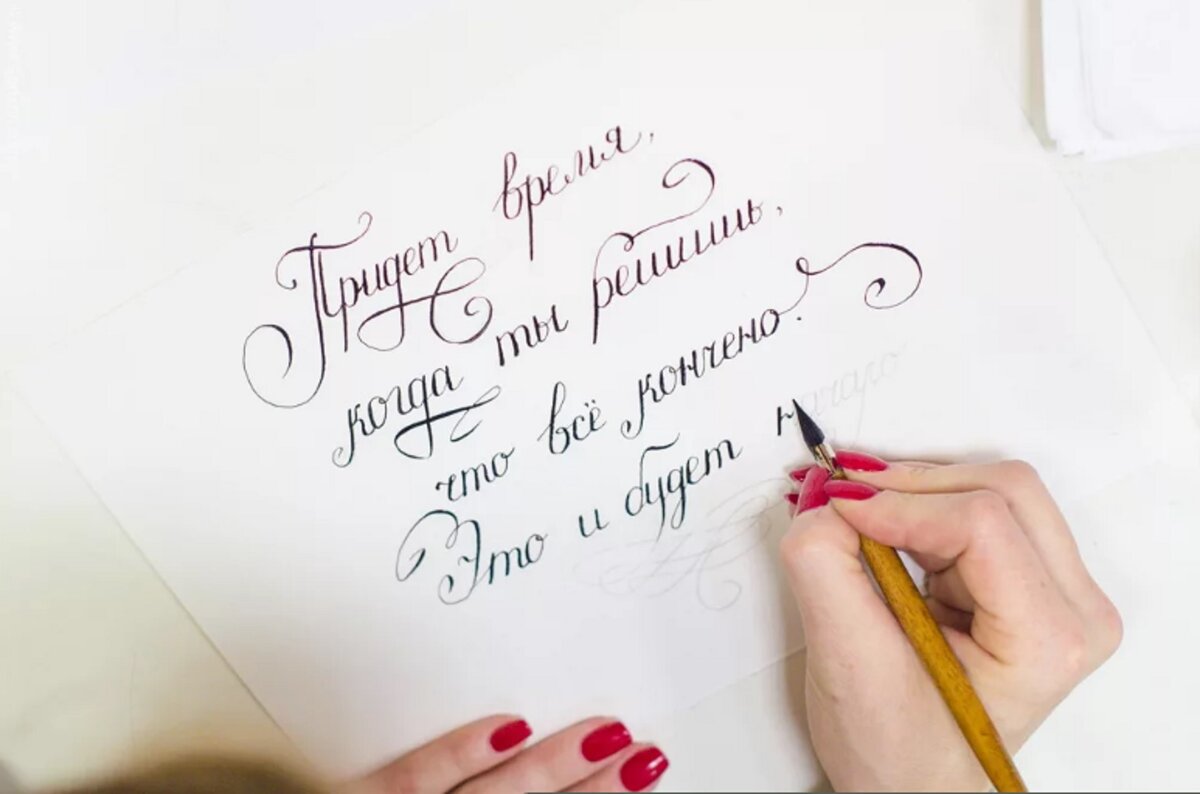 Придет время,
когда ты решишь,
что всё кончено.
Это и будет начало